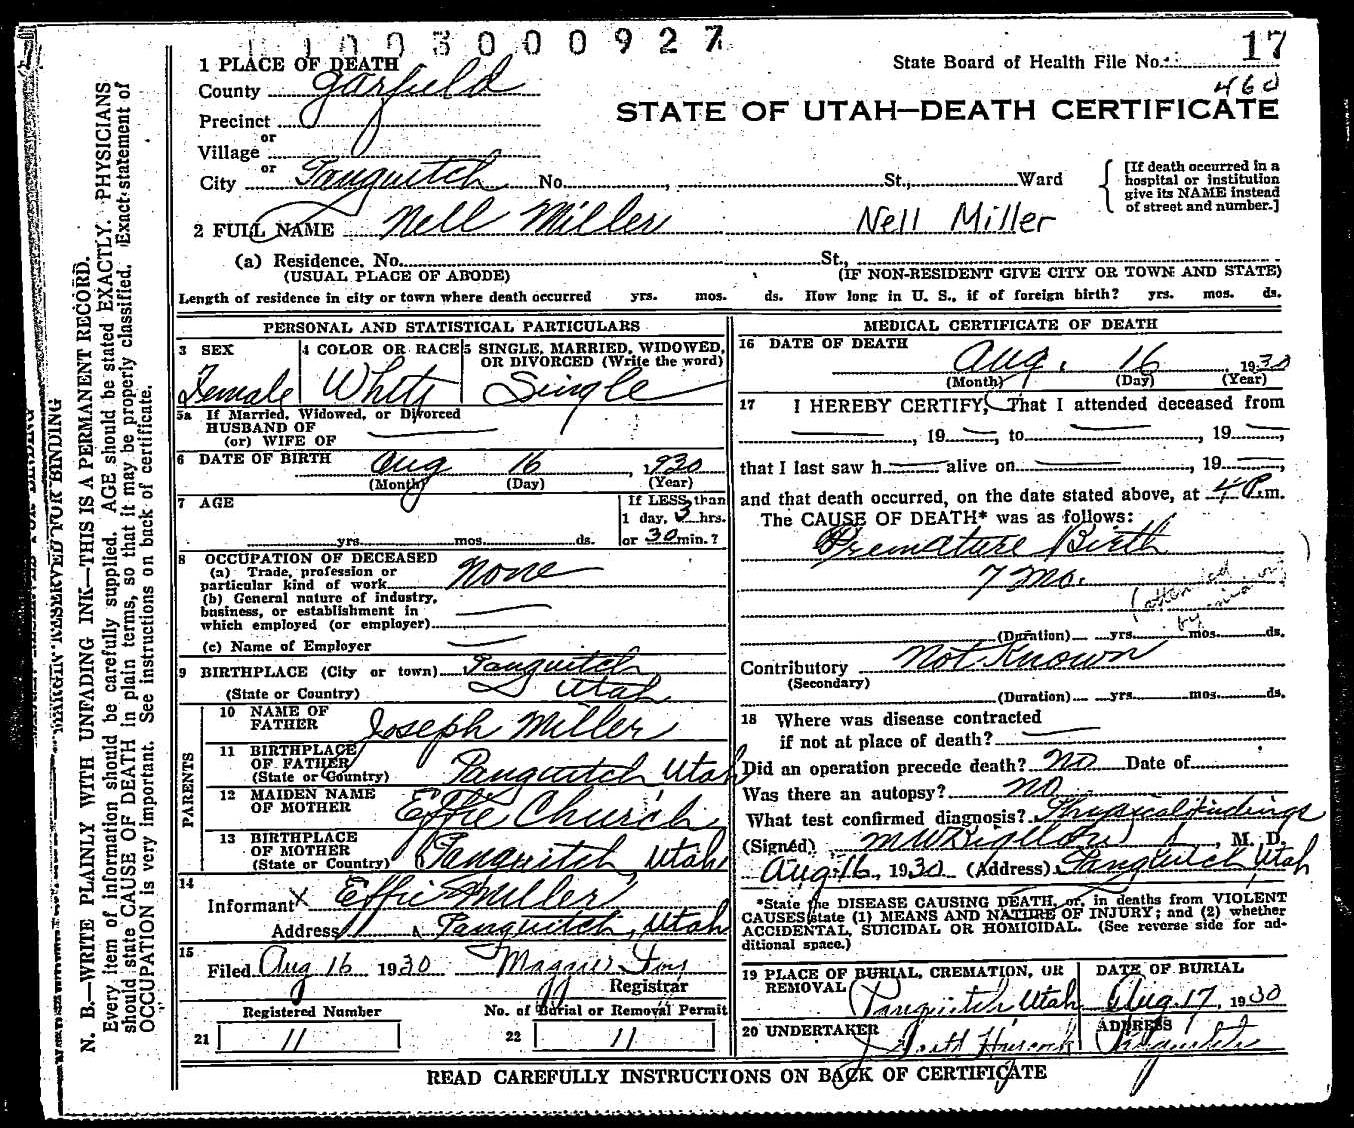 1003000927
17
1 PLACE OF DEATH
State Board of Health File No.
460
County Garfield
STATE OF UTAH—DEATH CERTIFICATE
Precinct
or
Village
or
City Panguitch No. , St., Ward
[If death occurred in a
hospital or institution
give its NAME instead
of street and number.]
2 FULL NAME Nell Miller Nell Miller
(a) Residence. No. St.,
(USUAL PLACE OF ABODE) (IF NON-RESIDENT GIVE CITY OR TOWN AND STATE)
Length of residence in city or town where death occurred yrs. mos. ds. How long in U. S., if of foreign birth? yrs. mos. ds.
PERSONAL AND STATISTICAL PARTICULARS
3 SEX
Female
4 COLOR OR RACE
White
5 SINGLE, MARRIED, WIDOWED,
OR DIVORCED (Write the word)
Single
5a If Married, Widowed, or Divorced
HUSBAND OF
(or) WIFE OF
6 DATE OF BIRTH Aug 16, 1930
(Month) (Day) (Year)
7 AGE
yrs. mos. ds.
If LESS than
1 day, 3 hrs.
or 30 min.?
8 OCCUPATION OF DECEASED
(a) Trade, profession or
particular kind of work None
(b) General nature of industry,
business, or establishment in
which employed (or employer)
(c) Name of Employer
9 BIRTHPLACE (City or town) Panguitch
(State or Country) Utah
PARENTS
10 NAME OF
FATHER Joseph Miller
11 BIRTHPLACE
OF FATHER
(State or Country) Panguitch Utah
12 MAIDEN NAME
OF MOTHER Effie Church
13 BIRTHPLACE
OF MOTHER
(State or Country) Panguitch Utah
14
Informant X Effie Miller
Address Panguitch, Utah
15
Filed Aug 16 1930 Maggie Foy
Registrar
Registered Number
21 11
No. of Burial or Removal Permit
22 11
MEDICAL CERTIFICATE OF DEATH
16 DATE OF DEATH
Aug. 16, 1930
(Month) (Day) (Year)
17 I HEREBY CERTIFY, That I attended deceased from
, 19 , to , 19 ,
that I last saw h alive on , 19 ,
and that death occurred, on the date stated above, at 4 P.m.
The CAUSE OF DEATH* was as follows:
Premature Birth
7 Mo.
(attended
by
(Duration) yrs. mos. ds.
Contributory Not Known
(Secondary)
(Duration) yrs. mos. ds.
18 Where was disease contracted
if not at place of death?
Did an operation precede death? No Date of
Was there an autopsy? no
What test confirmed diagnosis? Physical findings
(Signed) M W Bigelow, M. D.
Aug. 16, 1930 (Address) Panguitch Utah
*State the DISEASE CAUSING DEATH, or, in deaths from VIOLENT
CAUSES state (1) MEANS AND NATURE OF INJURY; and (2) whether
ACCIDENTAL, SUICIDAL OR HOMICIDAL. (See reverse side for ad-
ditional space.)
19 PLACE OF BURIAL, CREMATION, OR
REMOVAL
Panguitch Utah
DATE OF BURIAL
Aug. 17, 1930
20 UNDERTAKER
ADDRESS
Panguitch
READ CAREFULLY INSTRUCTIONS ON BACK OF CERTIFICATE
MARGIN RESERVED FOR BINDING
N. B.—WRITE PLAINLY WITH UNFADING INK—THIS IS A PERMANENT RECORD.
Every item of information should be carefully supplied. AGE should be stated EXACTLY. PHYSICIANS
should state CAUSE OF DEATH in plain terms, so that it may be properly classified. Exact statement of
OCCUPATION is very important. See instructions on back of certificate.